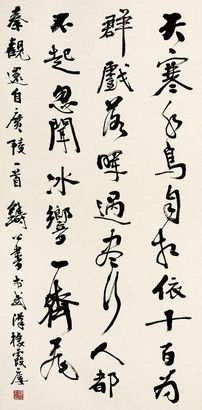 天寒水鳥自相依十百為
群戲落暉過盡行人都
不起忽聞冰響一齊飛
秦觀還自廣陵一首 公書於武漢棲霞